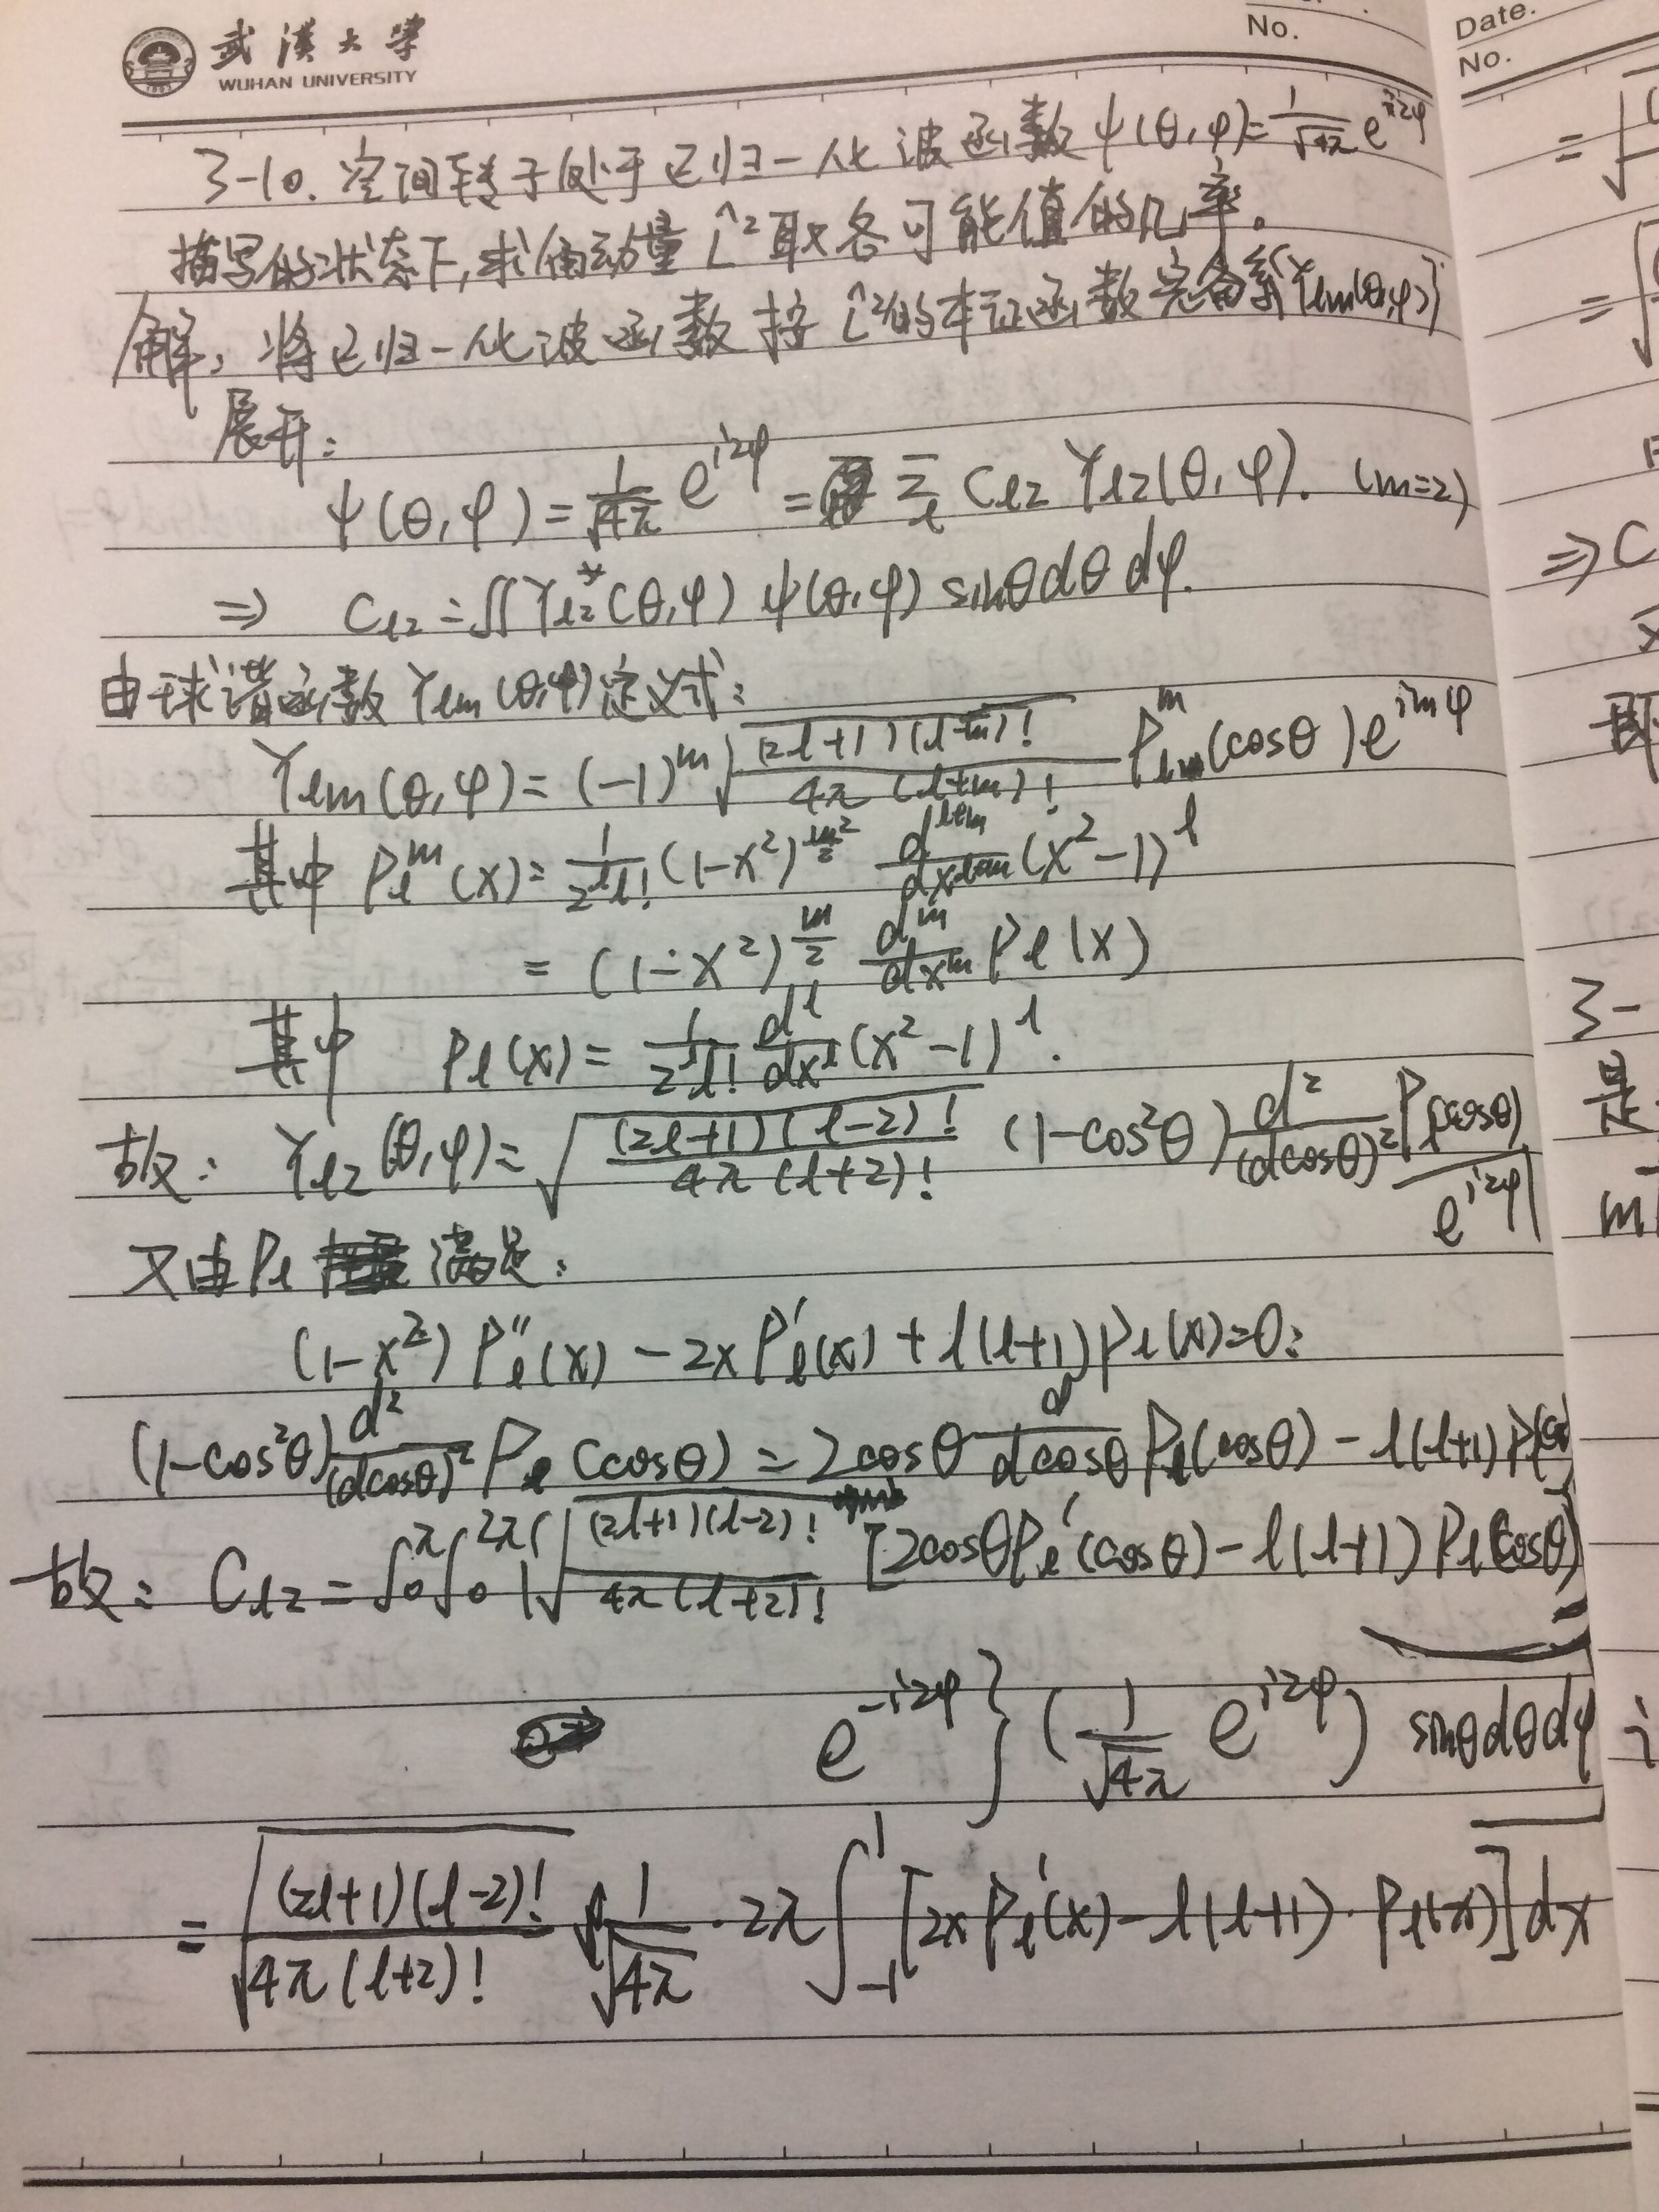 武漢大學
WUHAN UNIVERSITY
No.
3-10. 空间转子处于已归一化波函数 ψ(θ,φ)=1/√4π e^{i2φ}
描写的状态下,求角动量 L̂² 取各可能值的几率。
解: 将已归一化波函数按 L̂²的本征函数完备系{Ylm(θ,φ)}
展开:
ψ(θ,φ) = 1/√4π e^{i2φ} = Σ_l C_{l2} Y_{l2}(θ,φ). (m=2)
⇒ C_{l2} = ∬ Y*_{l2}(θ,φ) ψ(θ,φ) sinθdθ dφ.
由球谐函数 Ylm(θ,φ)定义式:
Ylm(θ,φ) = (-1)^m √((2l+1)(l-m)!/4π(l+m)!) P_l^m(cosθ) e^{imφ}
其中 P_l^m(x) = 1/2^l l! (1-x²)^{m/2} d^{l+m}/dx^{l+m} (x²-1)^l
= (1-x²)^{m/2} d^m/dx^m P_l(x)
其中 P_l(x) = 1/2^l l! d^l/dx^l (x²-1)^l.
故: Y_{l2}(θ,φ) = √((2l+1)(l-2)!/4π(l+2)!) (1-cos²θ) d²/(dcosθ)² P_l(cosθ) e^{i2φ}
又由 P_l 满足:
(1-x²) P_l''(x) - 2x P_l'(x) + l(l+1) P_l(x) = 0:
(1-cos²θ) d²/(dcosθ)² P_l(cosθ) = 2cosθ d/dcosθ P_l(cosθ) - l(l+1) P_l(cosθ)
故: C_{l2} = ∫_0^π ∫_0^{2π} { √((2l+1)(l-2)!/4π(l+2)!) [2cosθ P_l'(cosθ) - l(l+1) P_l(cosθ)]
e^{-i2φ} } (1/√4π e^{i2φ}) sinθdθdφ
= √((2l+1)(l-2)!/4π(l+2)!) 1/√4π · 2π ∫_{-1}^{1} [2x P_l'(x) - l(l+1) · P_l(x)] dx
Date.
No.
= √
= √
⇒ C
又
即
3-
是
m